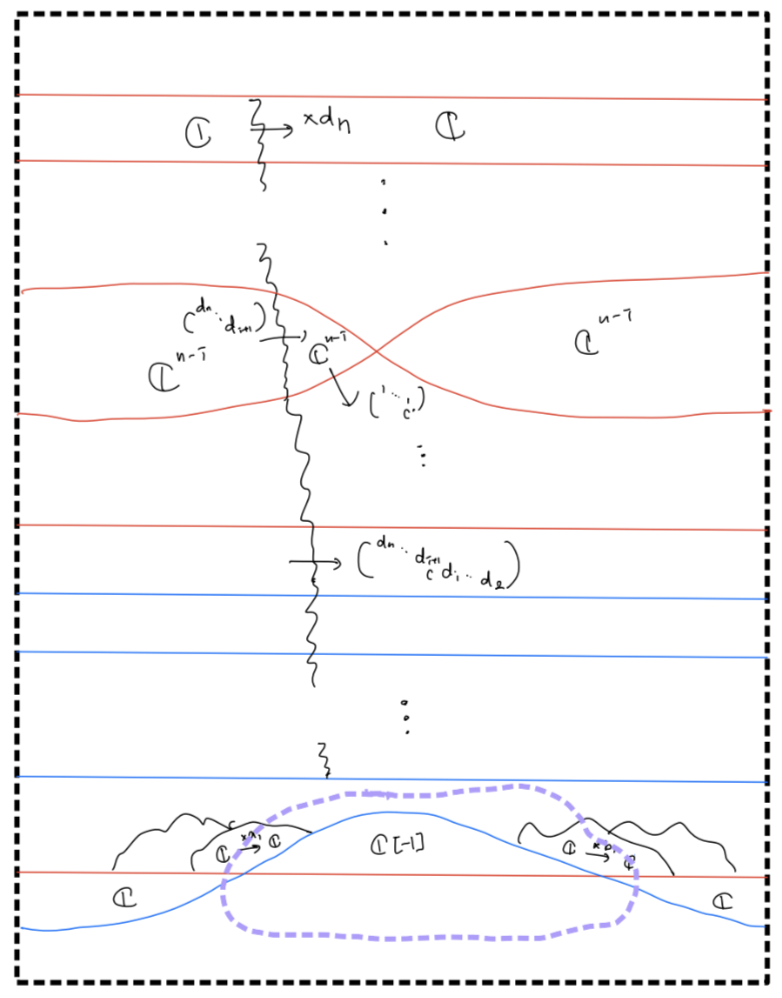 ℂ × dₙ ℂ
⋮
(dₙ ⋱ dᵢ₊₁)
ℂⁿ⁻ⁱ ℂⁿ⁻ⁱ ℂⁿ⁻ⁱ
(1 ⋱ 1 c)
⋮
(dₙ ⋱ dᵢ₊₁ c dᵢ ⋱ d₂)
⋮
ℂ → ℂ ℂ[-1] ℂ → ℂ
ℂ ℂ